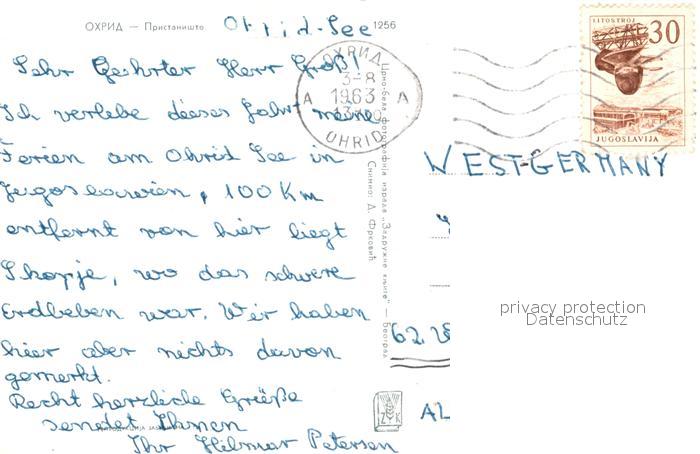 ОХРИД — Пристаниште
Ohrid-See
1256
Sehr Geehrter Herr Groß!
Ich verlebe dieses Jahr meine
Ferien am Ohrid See in
Jugoslawien, 100 Km
entfernt von hier liegt
Skopje, wo das schwere
Erdbeben war. Wir haben
hier aber nichts davon
gemerkt.
Recht herzliche Grüße
sendet Ihnen
Ihr Hilmar Petersen
ОХРИД
3-8
1963
A A
OHRID
Црно-бела фотографија израда „Задружне књиге" — Београд
Снимио: Д. Фрковић
ZK
LITOSTROJ
30
JUGOSLAVIJA
WESTGERMANY
62
AL
privacy protection
Datenschutz